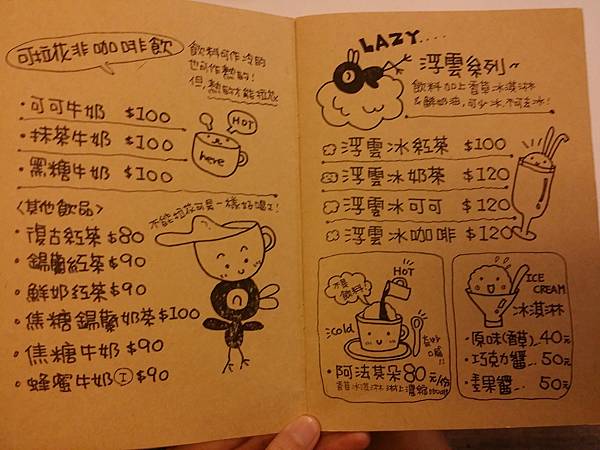 可拉花非咖啡飲
飲料可作冷的
也可作熱的!
但,熱的才能拉花
·可可牛奶 $100
·抹茶牛奶 $100
·黑糖牛奶 $100
HOT
here
<其他飲品>
不能拉花可是一樣好喝ㄛ!
·復古紅茶 $80
·錫蘭紅茶 $90
·鮮奶紅茶 $90
·焦糖錫蘭奶茶 $100
·焦糖牛奶 $90
·蜂蜜牛奶 $90
LAZY....
浮雲系列~
飲料加上香草冰淇淋
&鮮奶油,可少冰.不可去冰!
浮雲冰紅茶 $100
浮雲冰奶茶 $120
浮雲冰可可 $120
浮雲冰咖啡 $120
HOT
cold
·阿法其朵 80元/份
香草冰淇淋淋上濃縮
ICE
CREAM
冰淇淋
·原味(香草).. 40元
·巧克力醬... 50元
果醬... 50元